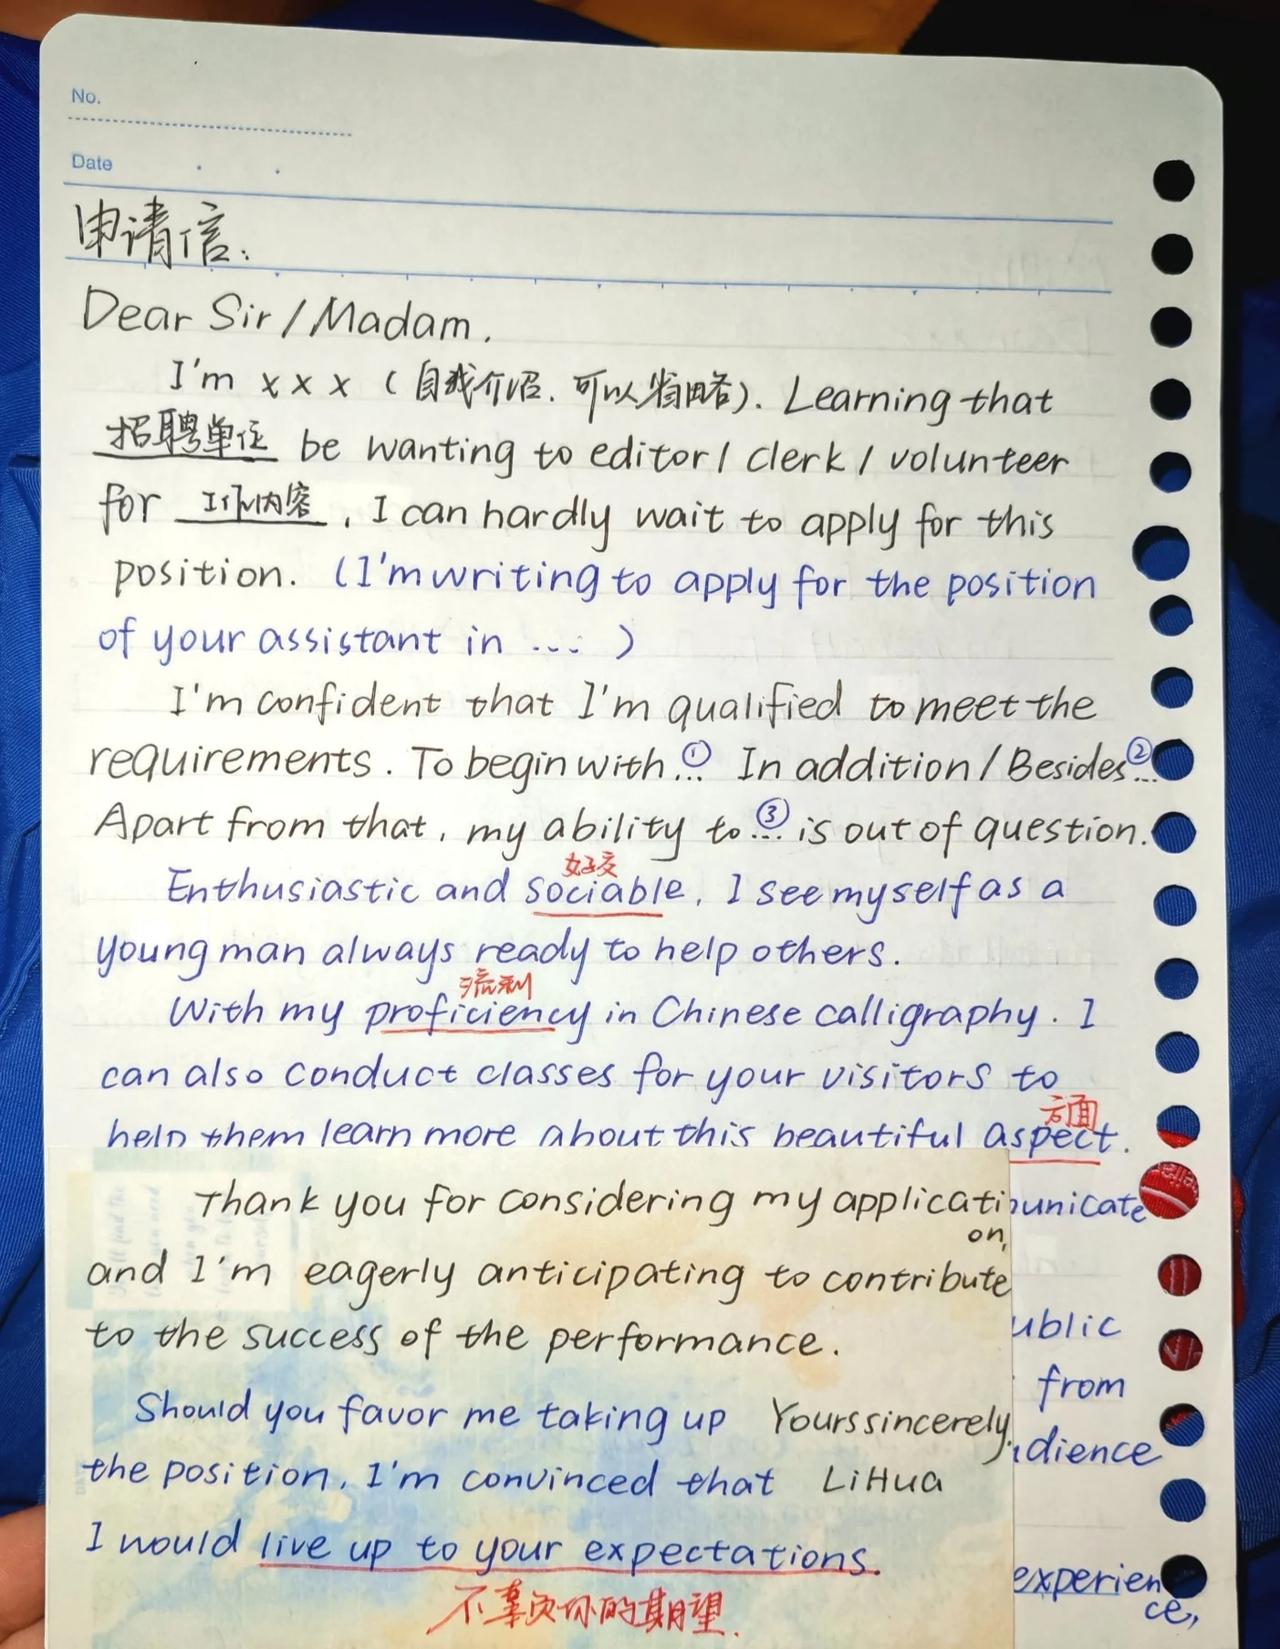 No.
Date
申请信:
Dear Sir/Madam,
I'm x x x (自我介绍,可以省略). Learning that
招聘单位 be wanting to editor/clerk/volunteer
for 工作内容, I can hardly wait to apply for this
position. (I'm writing to apply for the position
of your assistant in ... )
I'm confident that I'm qualified to meet the
requirements. To begin with...① In addition/Besides...②
Apart from that, my ability to...③ is out of question.
好交
Enthusiastic and sociable, I see myself as a
young man always ready to help others.
流利
With my proficiency in Chinese calligraphy. I
can also conduct classes for your visitors to
方面
help them learn more about this beautiful aspect.
Thank you for considering my application,
unicate
and I'm eagerly anticipating to contribute
to the success of the performance.
ublic
from
Should you favor me taking up Yours sincerely,
dience
the position, I'm convinced that LiHua
I would live up to your expectations.
experience,
不辜负你的期望.